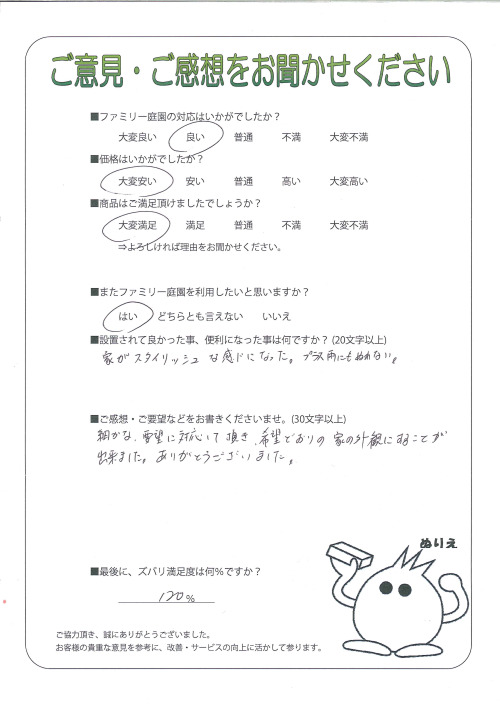 ご意見・ご感想をお聞かせください
■ファミリー庭園の対応はいかがでしたか？
大変良い 良い 普通 不満 大変不満
■価格はいかがでしたか？
大変安い 安い 普通 高い 大変高い
■商品はご満足頂けましたでしょうか？
大変満足 満足 普通 不満 大変不満
⇒よろしければ理由をお聞かせください。
■またファミリー庭園を利用したいと思いますか？
はい どちらとも言えない いいえ
■設置されて良かった事、便利になった事は何ですか？(20文字以上)
家がスタイリッシュな感じになった。プラス雨にもぬれない。
■ご感想・ご要望などをお書きくださいませ。(30文字以上)
細かな要望に対応して頂き、希望どおりの家の外観にすることが
出来ました。ありがとうございました。
ぬりえ
■最後に、ズバリ満足度は何％ですか？
120％
ご協力頂き、誠にありがとうございました。
お客様の貴重な意見を参考に、改善・サービスの向上に活かして参ります。